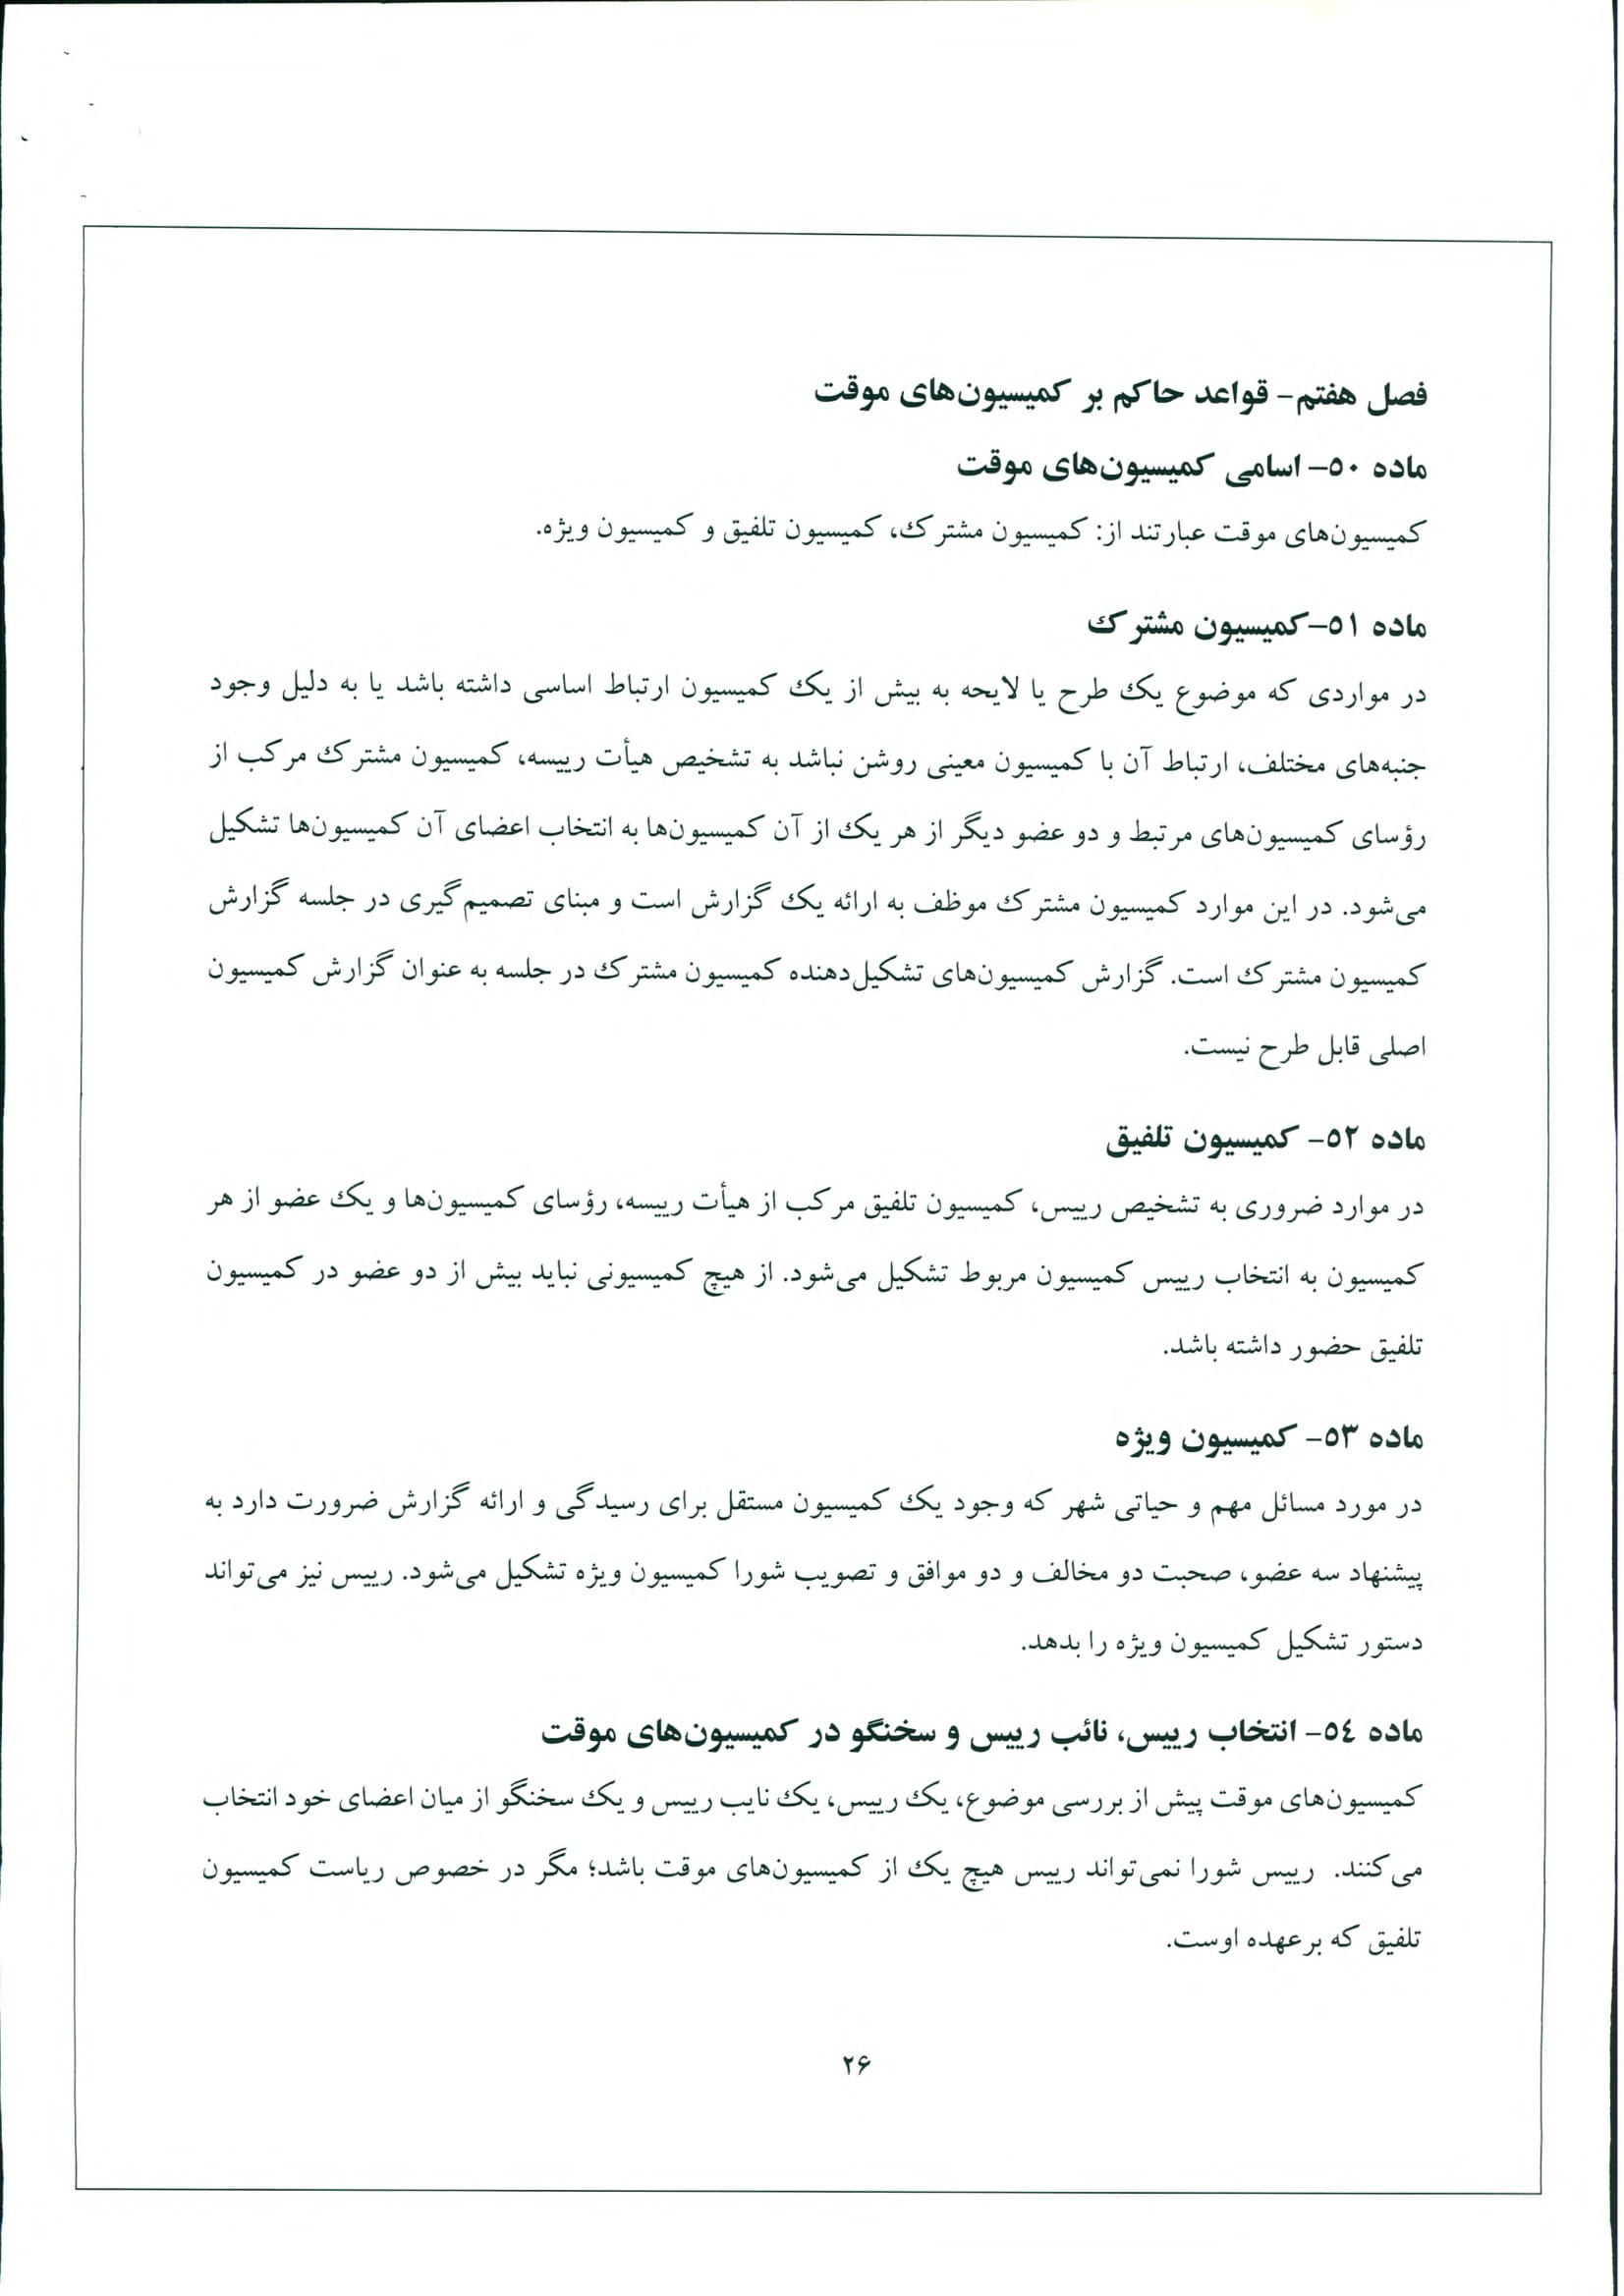 فصل هفتم- قواعد حاکم بر کمیسیون‌های موقت
ماده ۵۰- اسامی کمیسیون‌های موقت
کمیسیون‌های موقت عبارتند از: کمیسیون مشترک، کمیسیون تلفیق و کمیسیون ویژه.
ماده ۵۱-کمیسیون مشترک
در مواردی که موضوع یک طرح یا لایحه به بیش از یک کمیسیون ارتباط اساسی داشته باشد یا به دلیل وجود
جنبه‌های مختلف، ارتباط آن با کمیسیون معینی روشن نباشد به تشخیص هیأت رییسه، کمیسیون مشترک مرکب از
رؤسای کمیسیون‌های مرتبط و دو عضو دیگر از هر یک از آن کمیسیون‌ها به انتخاب اعضای آن کمیسیون‌ها تشکیل
می‌شود. در این موارد کمیسیون مشترک موظف به ارائه یک گزارش است و مبنای تصمیم‌گیری در جلسه گزارش
کمیسیون مشترک است. گزارش کمیسیون‌های تشکیل‌دهنده کمیسیون مشترک در جلسه به عنوان گزارش کمیسیون
اصلی قابل طرح نیست.
ماده ۵۲- کمیسیون تلفیق
در موارد ضروری به تشخیص رییس، کمیسیون تلفیق مرکب از هیأت رییسه، رؤسای کمیسیون‌ها و یک عضو از هر
کمیسیون به انتخاب رییس کمیسیون مربوط تشکیل می‌شود. از هیچ کمیسیونی نباید بیش از دو عضو در کمیسیون
تلفیق حضور داشته باشد.
ماده ۵۳- کمیسیون ویژه
در مورد مسائل مهم و حیاتی شهر که وجود یک کمیسیون مستقل برای رسیدگی و ارائه گزارش ضرورت دارد به
پیشنهاد سه عضو، صحبت دو مخالف و دو موافق و تصویب شورا کمیسیون ویژه تشکیل می‌شود. رییس نیز می‌تواند
دستور تشکیل کمیسیون ویژه را بدهد.
ماده ٥٤- انتخاب رییس، نائب رییس و سخنگو در کمیسیون‌های موقت
کمیسیون‌های موقت پیش از بررسی موضوع، یک رییس، یک نایب رییس و یک سخنگو از میان اعضای خود انتخاب
می‌کنند. رییس شورا نمی‌تواند رییس هیچ یک از کمیسیون‌های موقت باشد؛ مگر در خصوص ریاست کمیسیون
تلفیق که بر عهده اوست.
۲۶